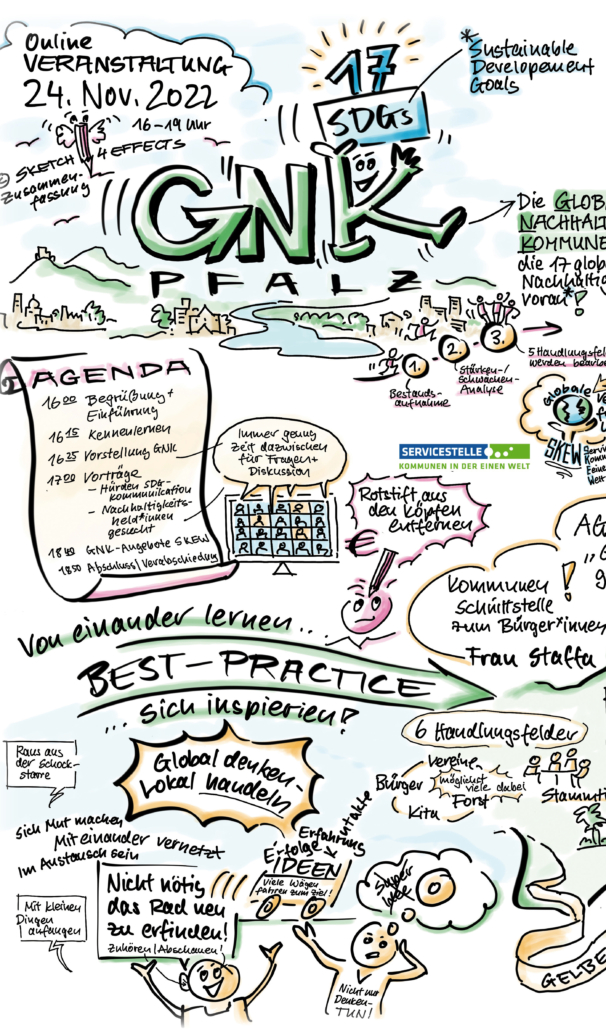 Online
VERANSTALTUNG
24. Nov. 2022
16-19 Uhr
© SKETCH 4 EFFECTS
Zusammen-
fassung
17
SDGs
*Sustainable
Developement
Goals
GNK
PFALZ
Die GLOBA
NACHHALT
KOMMUNE
die 17 globa
Nachhaltig
voran*!
1.
2.
3.
Bestands-
aufnahme
Stärken-/
Schwächen-
Analyse
5 Handlungsfel
werden
AGENDA
16⁰⁰ Begrüßung+
Einführung
16¹⁵ Kennenlernen
16²⁵ Vorstellung GNK
17⁰⁰ Vorträge
- Hürden SDG-
kommunikation
- Nachhaltigkeits-
held*innen
gesucht
18⁴⁰ GNK-Angebote SKEW
18⁵⁰ Abschluss/Verabschiedung
Immer genug
Zeit dazwischen
für Fragen+
Diskussion
SERVICESTELLE
KOMMUNEN IN DER EINEN WELT
Globale
SKEW
Servi
Komm
Einen
Welt
Rotstift aus
den Köpfen
entfernen
€
AG
„G
g
Kommunen
Schnittstelle
zum Bürger*innen
!
- Frau Staffa
Von einander lernen...
BEST-PRACTICE
... sich inspirieren!
Raus aus
der Schock-
starre
Global denken-
Lokal handeln
6 Handlungsfelder
Vereine
Bürger
möglichst
viele dabei
Forst
Kita
Stammti
Sich Mut machen
Miteinander vernetzt
Im Austausch sein
Erfolge
Erfahrung
Kontakte
IDEEN
Viele Wägen
fahren zum Ziel!
Nicht nötig
das Rad neu
zu erfinden!
Zuhören/Abschauen!
Mit kleinen
Dingen
anfangen
Super
Idee
Nicht nur
Denken-
TUN!
GELBE